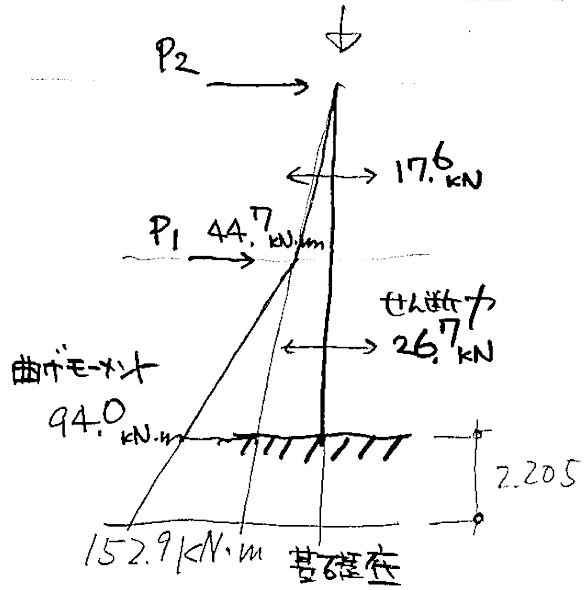 P2
17.6 kN
P1 44.7 kN.m
せん断力
26.7 kN
曲げモーメント
94.0 kN.m
2.205
152.9 kN・m 基礎底